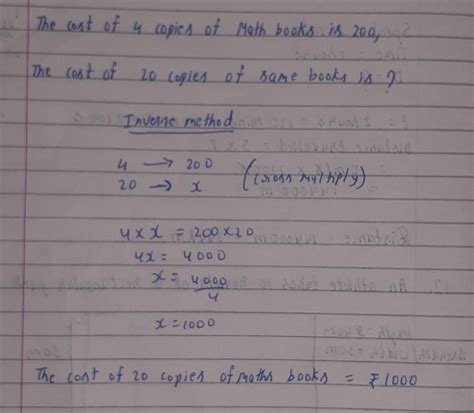 The cost of 4 copies of Math books is 200,
The cost of 20 copies of same books is ?
Inverse method
4 → 200
20 → x (Cross multiply)
4 × x = 200 × 20
4x = 4000
x = 4000/4
x = 1000
The cost of 20 copies of maths books = ₹1000